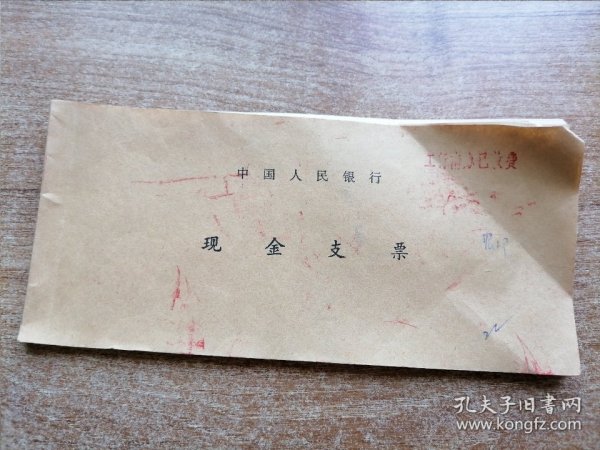 中国人民银行
现金支票
孔夫子旧书网
www.kongfz.com